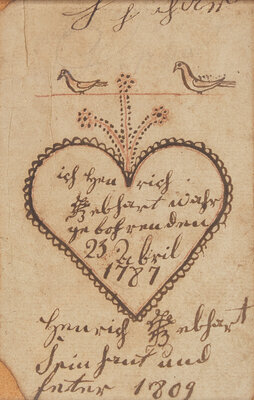 ich Henrich
Gebhart wahr
gebohren den
23 Abril
1787
Henrich Gebhart
Sein hant und
feter 1809